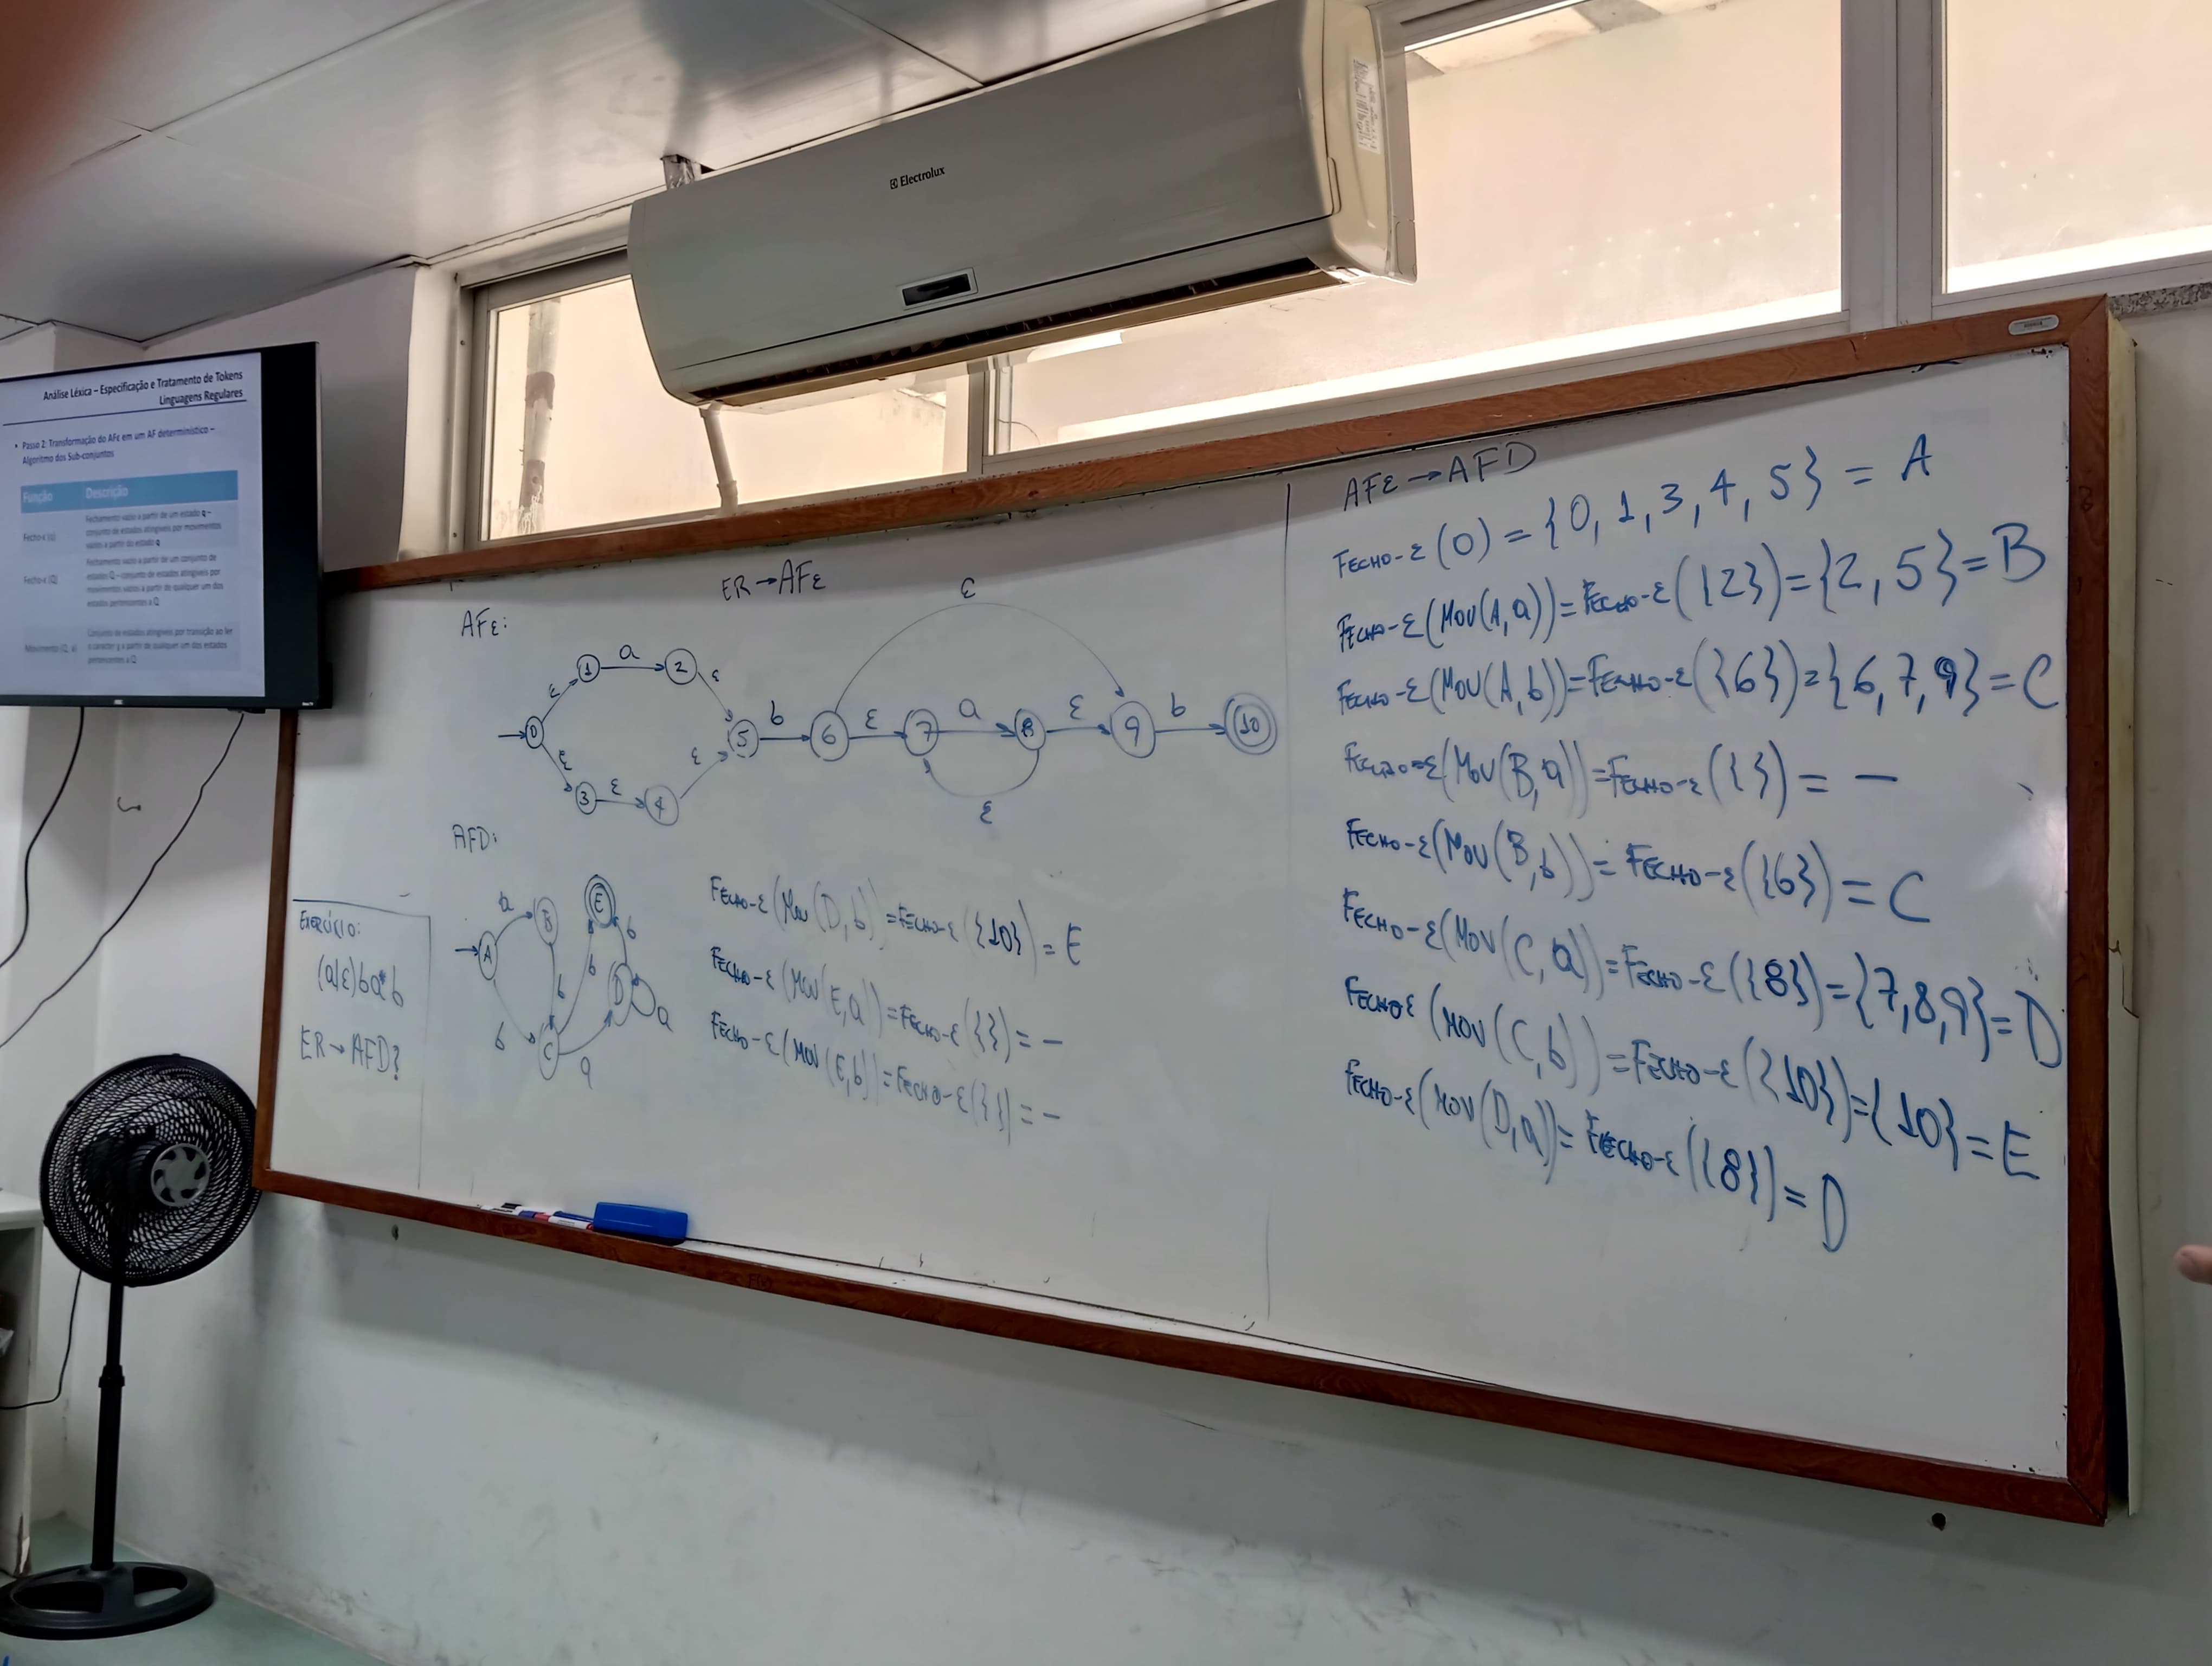 Electrolux
Análise Léxica – Especificação e Tratamento de Tokens
Linguagens Regulares
• Passo 2: Transformação do AFε em um AF determinístico –
Algoritmo dos Sub-conjuntos
Função Descrição
Fecho-ε (q) Fechamento vazio a partir de um estado q –
conjunto de estados atingíveis por movimentos
vazios a partir do estado q
Fecho-ε (Q) Fechamento vazio a partir de um conjunto de
estados Q – conjunto de estados atingíveis por
movimentos vazios a partir de qualquer um dos
estados pertencentes a Q
Movimento (Q, a) Conjunto de estados atingíveis por transição ao ler
o caracter a partir de qualquer um dos estados
pertencentes a Q
ER → AFε
AFε:
0 ε 1 a 2 ε 5
0 ε 3 ε 4 ε 5
5 b 6 ε 7 a 8 ε 9 b 10
ε
ε
AFD:
A a B b C
A b C
C b E
C a D
D b E
a
EXERCÍCIO:
(a|ε)ba*b
ER → AFD?
FECHO-ε(MOV(D,b))=FECHO-ε({10})=E
FECHO-ε(MOV(E,a))=FECHO-ε({})=–
FECHO-ε(MOV(E,b))=FECHO-ε({})=–
AFε → AFD
FECHO-ε(0)={0,1,3,4,5}=A
FECHO-ε(MOV(A,a))=FECHO-ε({2})={2,5}=B
FECHO-ε(MOV(A,b))=FECHO-ε({6})={6,7,9}=C
FECHO-ε(MOV(B,a))=FECHO-ε({})=–
FECHO-ε(MOV(B,b))=FECHO-ε({6})=C
FECHO-ε(MOV(C,a))=FECHO-ε({8})={7,8,9}=D
FECHO-ε(MOV(C,b))=FECHO-ε({10})={10}=E
FECHO-ε(MOV(D,a))=FECHO-ε({8})=D